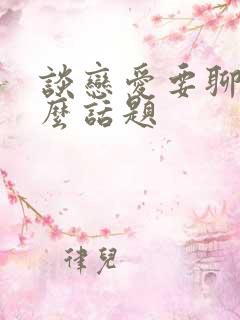 談戀愛要聊
麼話題
律兒